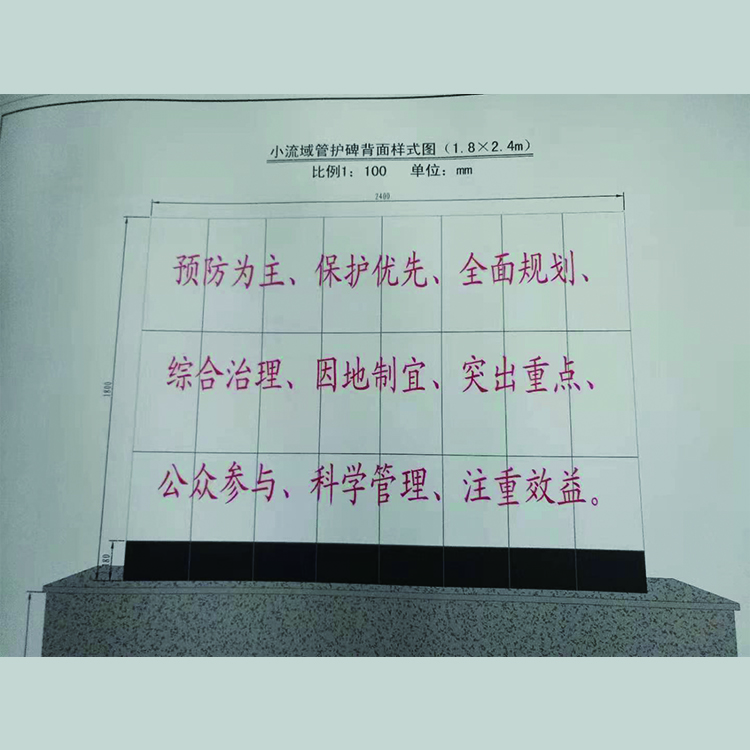 小流域管护碑背面样式图（1.8×2.4m）
比例1：100 单位：mm
2400
预防为主、保护优先、全面规划、
综合治理、因地制宜、突出重点、
1800
公众参与、科学管理、注重效益。